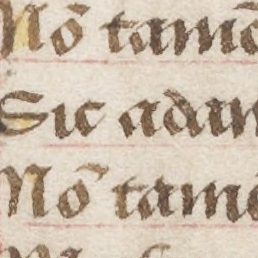 Nō tamē
Sic adam
Nō tamē